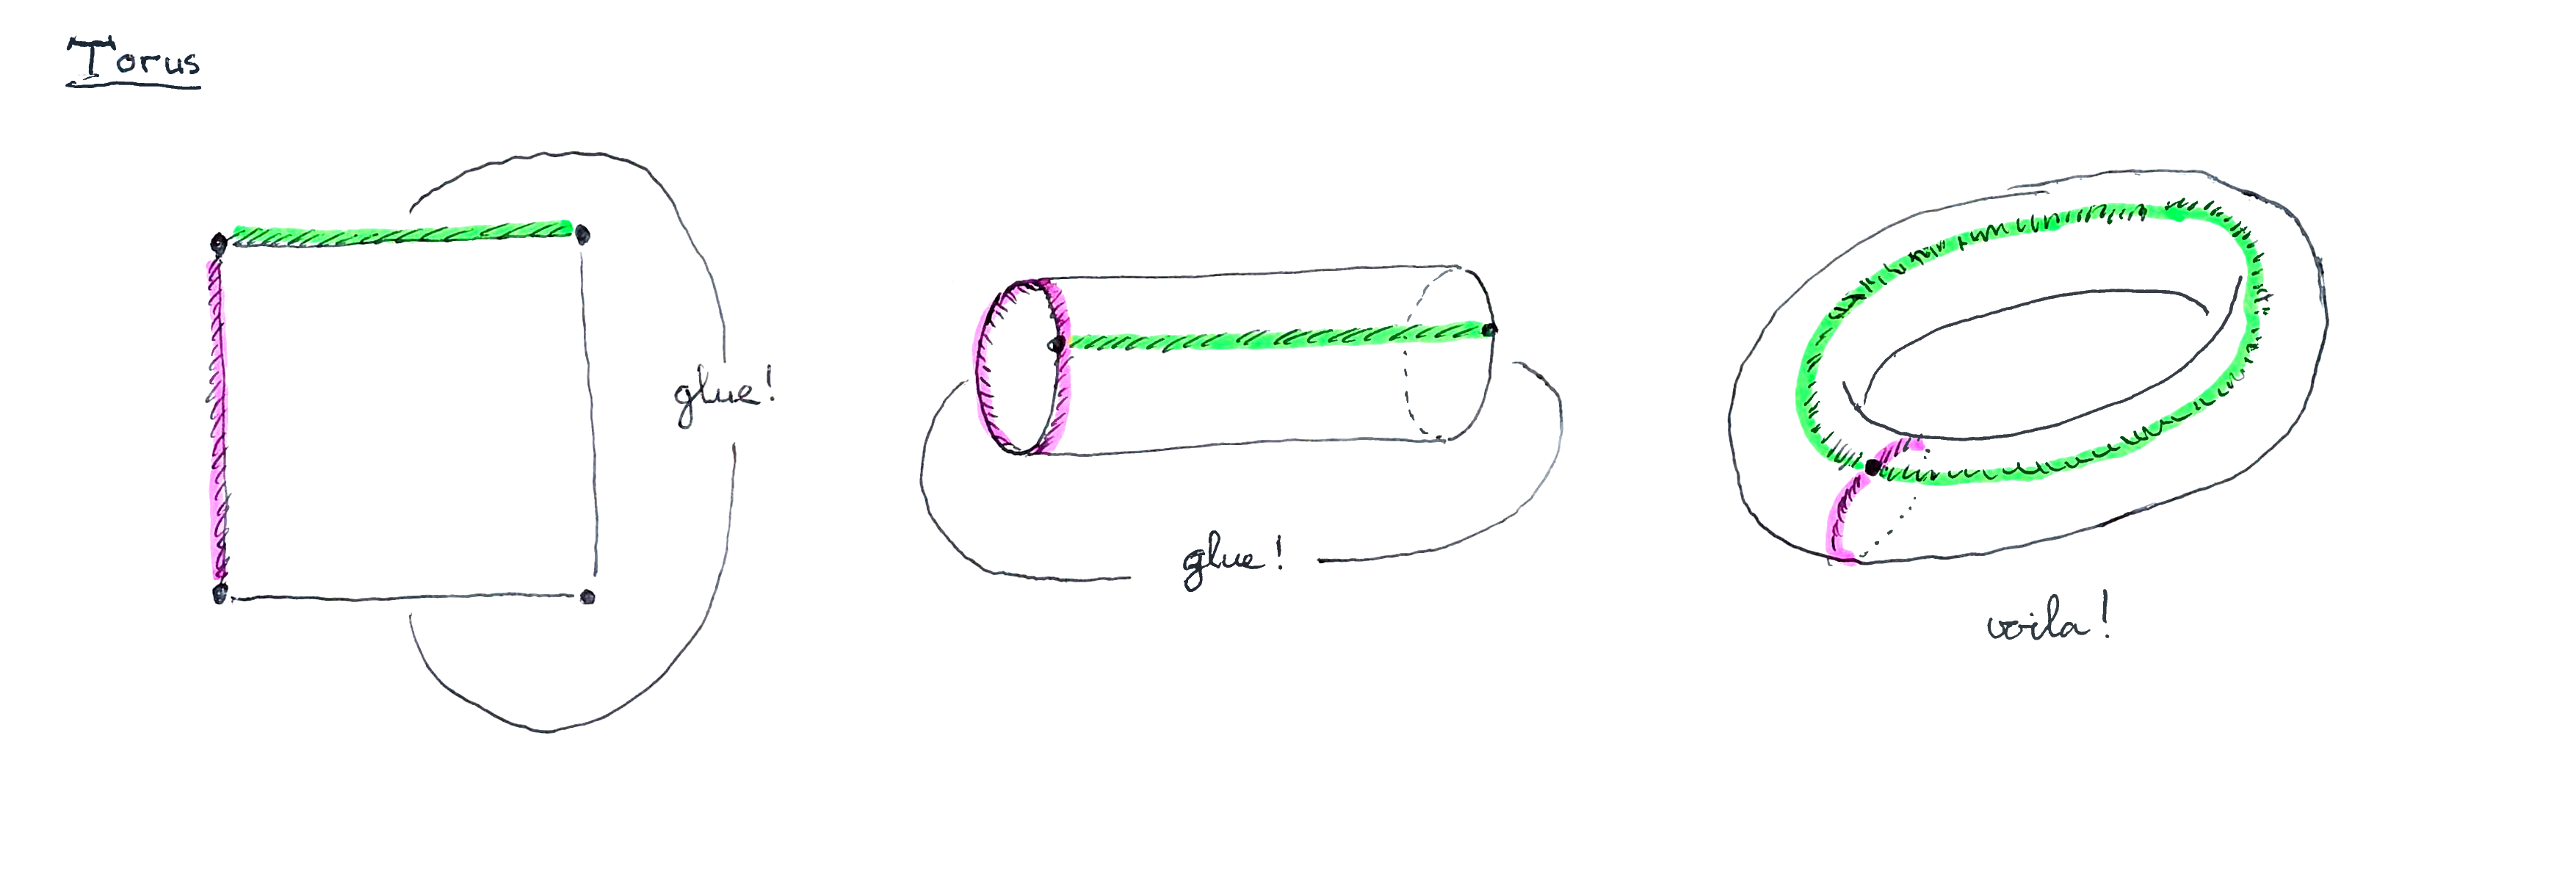 Torus
glue!
glue!
voila!